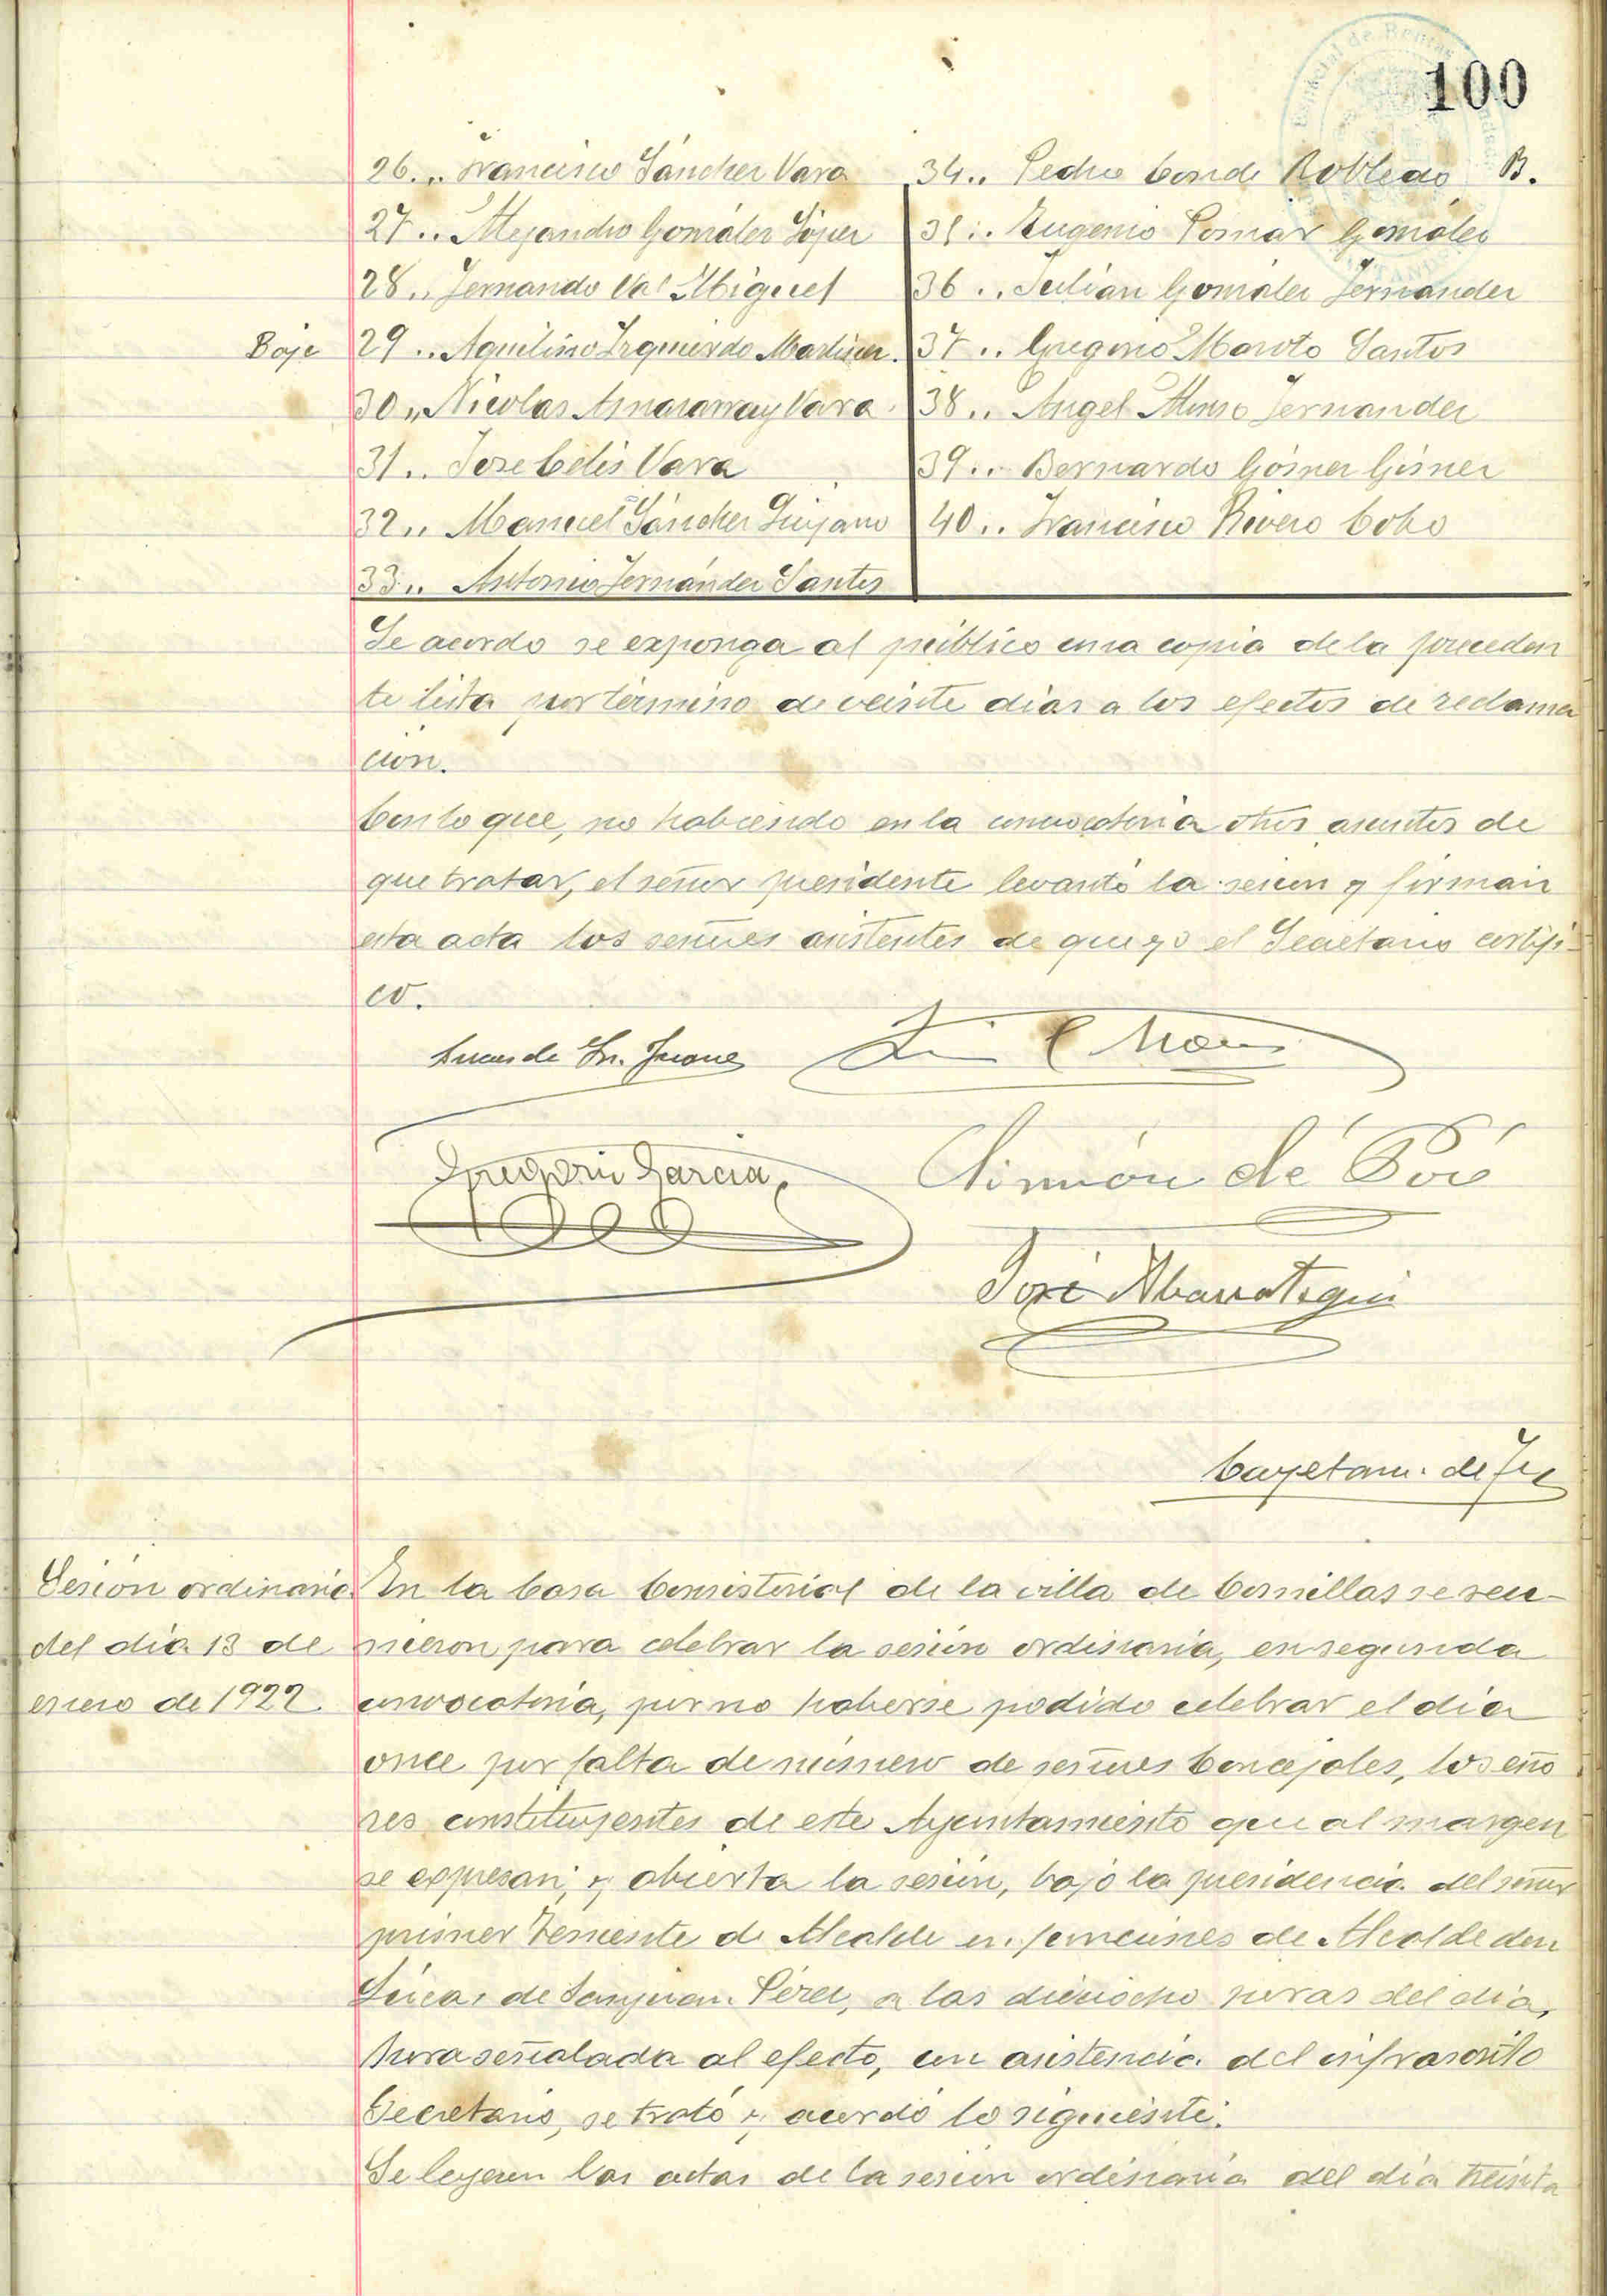 100
26.. Francisco Sáncher Vara
27.. Alejandro Gonzáles López
28.. Fernando Val Miguel
Baja 29.. Aquilino Izquierdo Martiner.
30.. Nicolas Vara.
31.. Jose Celis Vara
32.. Manuel Sáncher Quijano
33.. Antonio Fernánder Santos
34.. Pedro Conde Robledo B.
35.. Eugenio Pomar Gonzáles
36.. Julián Gonzáler Fernander
37.. Gregorio Maroto Santos
38.. Angel Alonso Fernander
39.. Bernardo Gómer Gómer
40.. Francisco Rivero Cobo
Se acordo se exponga al público una copia de la preceden
te lista por término de veinte días a los efectos de reclama
ción.
Con lo que, no habiendo en la convocatoria otros asuntos de
que tratar, el señor presidente levantó la sesion y firman
esta acta los señores asistentes de que yo el Secretario certifi-
co.
Lucas de Sn. Juan
Gregorio Garcia
Simón de Poó
José
Cayetano de
Sesión ordinaria
del día 13 de
enero de 1922.
En la Casa Consistorial de la villa de Comillas se reu-
nieron para celebrar la sesión ordinaria, en segunda
convocatoria, por no haberse podido celebrar el día
once por falta de número de señores Concejales, los eño
res constituyentes de este Ayuntamiento que al margen
se expresan; y abierta la sesión, bajo la presidencia del señor
primer Teniente de Alcalde en funciones de Alcalde don
Lúcas de Sanjuan Pérez, a las dieciocho horas del día,
hora señalada al efecto, con asistencia del infrascrito
Secretario, se trató y acordó lo siguiente:
Se leyeron las actas de la sesion ordinaria del día treinta